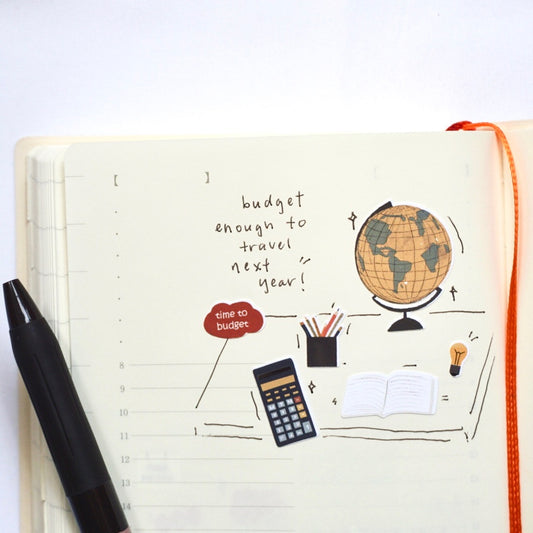 【 】
budget
enough to
travel
next
year!
time to
budget
8
9
10
11
12
13
14